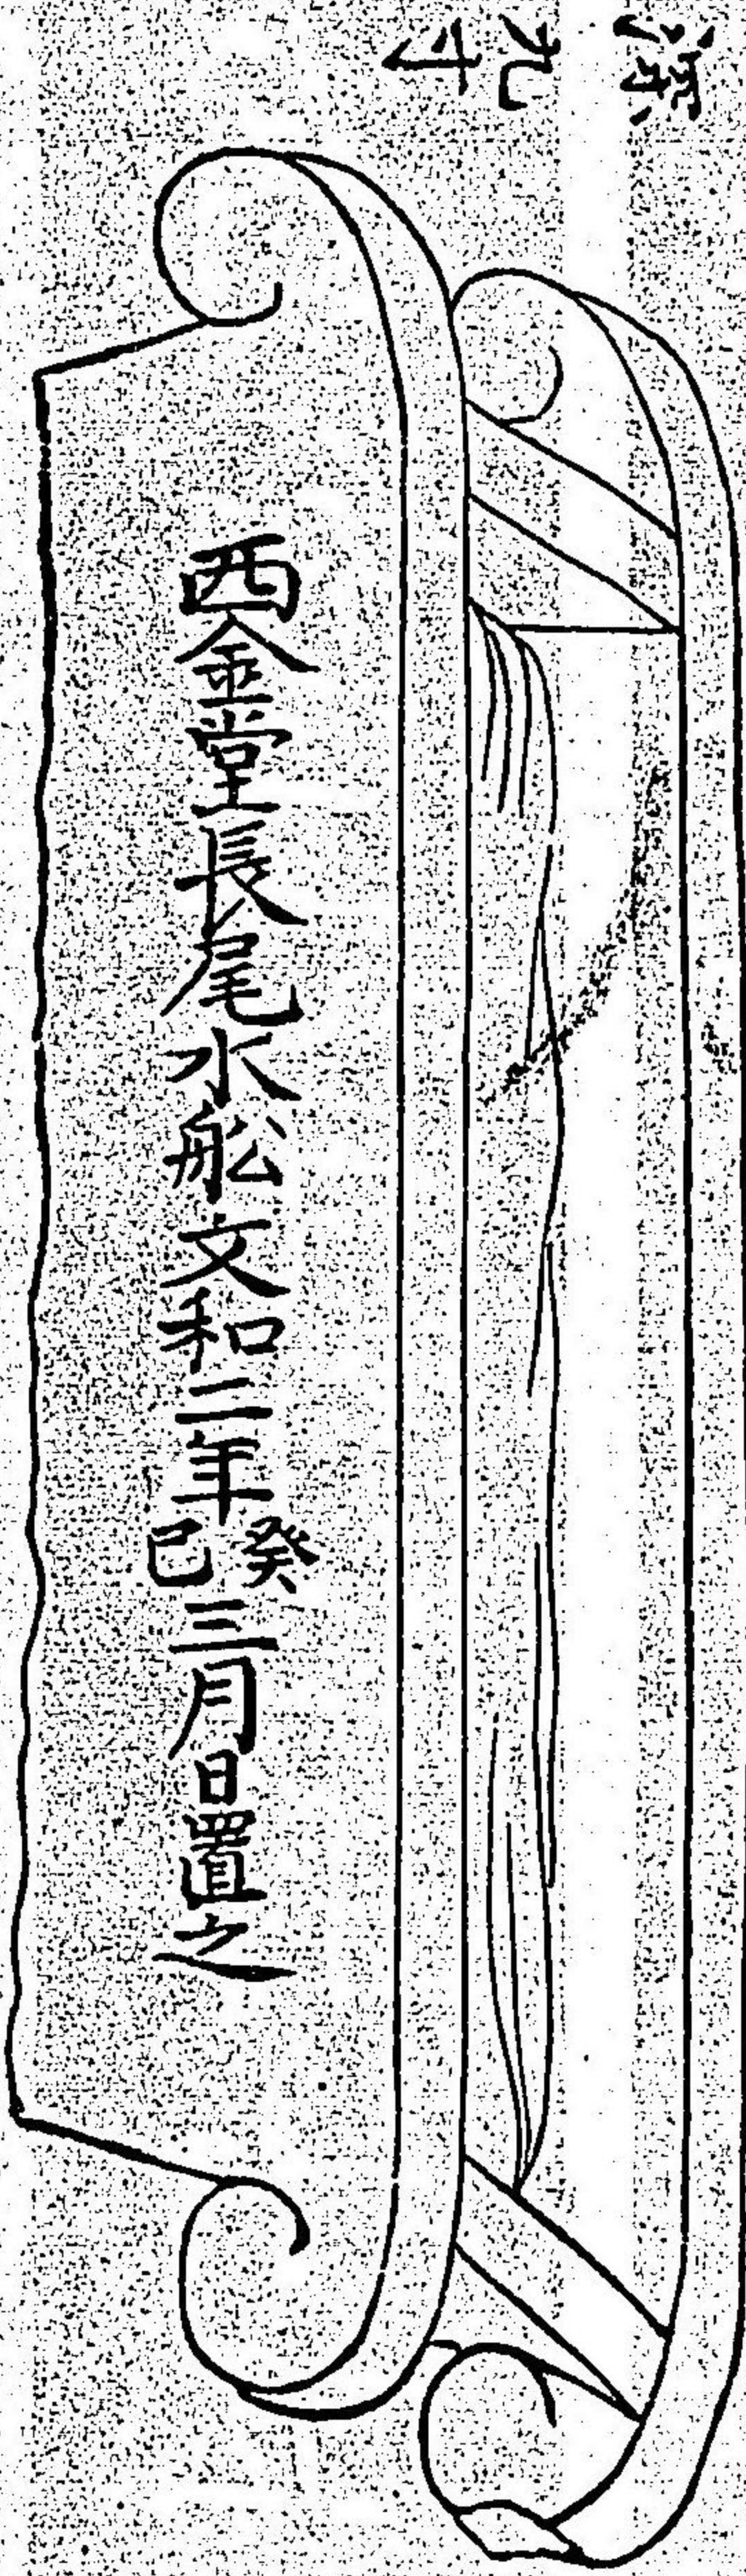 深九寸
西金堂長尾水舩文和二年癸巳三月日置之